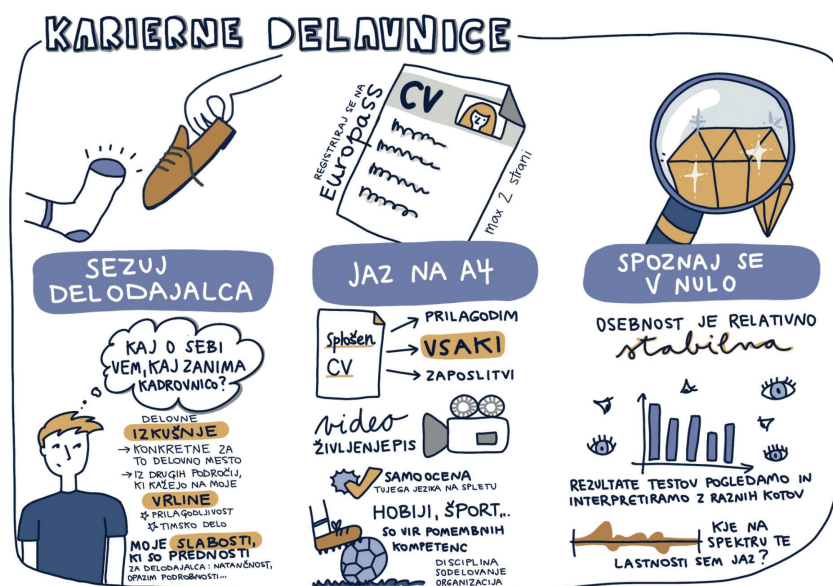 KARIERNE DELAVNICE
SEZUJ
DELODAJALCA
KAJ O SEBI
VEM, KAJ ZANIMA
KADROVNICO?
DELOVNE
IZKUŠNJE
→ KONKRETNE ZA
TO DELOVNO MESTO
→ IZ DRUGIH PODROČIJ,
KI KAŽEJO NA MOJE
VRLINE
☆ PRILAGODLJIVOST
☆ TIMSKO DELO
MOJE SLABOSTI,
KI SO PREDNOSTI
ZA DELODAJALCA: NATANČNOST,
OPAZIM PODROBNOSTI...
REGISTRIRAJ SE NA
Europass
CV
max 2 strani
JAZ NA A4
Splošen
CV
PRILAGODIM
VSAKI
ZAPOSLITVI
video
ŽIVLJENJEPIS
SAMOOCENA
TUJEGA JEZIKA NA SPLETU
HOBIJI, ŠPORT...
SO VIR POMEMBNIH
KOMPETENC
DISCIPLINA
SODELOVANJE
ORGANIZACIJA
SPOZNAJ SE
V NULO
OSEBNOST JE RELATIVNO
stabilna
REZULTATE TESTOV POGLEDAMO IN
INTERPRETIRAMO Z RAZNIH KOTOV
KJE NA
SPEKTRU TE
LASTNOSTI SEM JAZ?